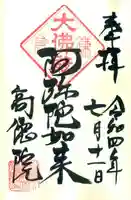 奉拝
令和四年
七月十二日
大佛
阿弥陀如来
高徳院